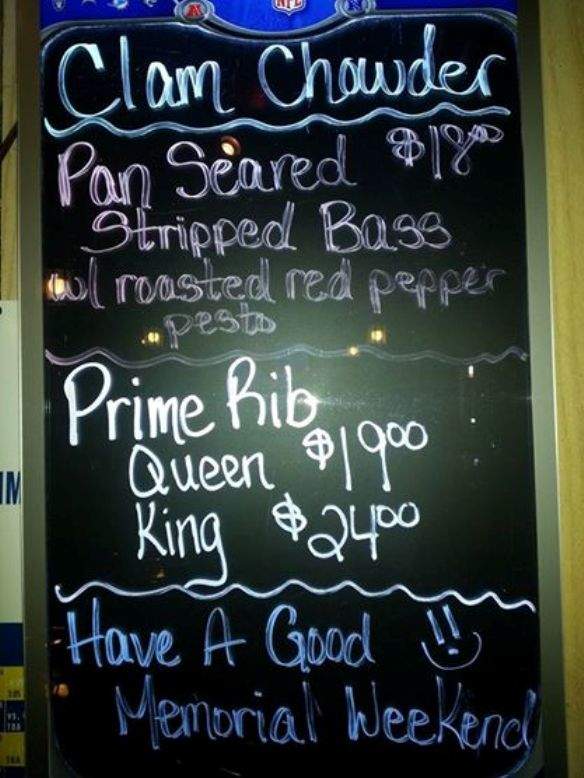 NFL
Clam Chowder
Pan Seared $18⁰⁰
Stripped Bass
w/ roasted red pepper
pesto
Prime Rib
Queen $19⁰⁰
King $24⁰⁰
Have A Good !!
Memorial Weekend
IM
VS.